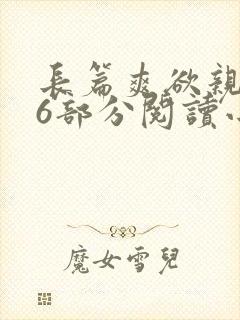 長篇爽欲親
6部分閱讀
魔女雪兒